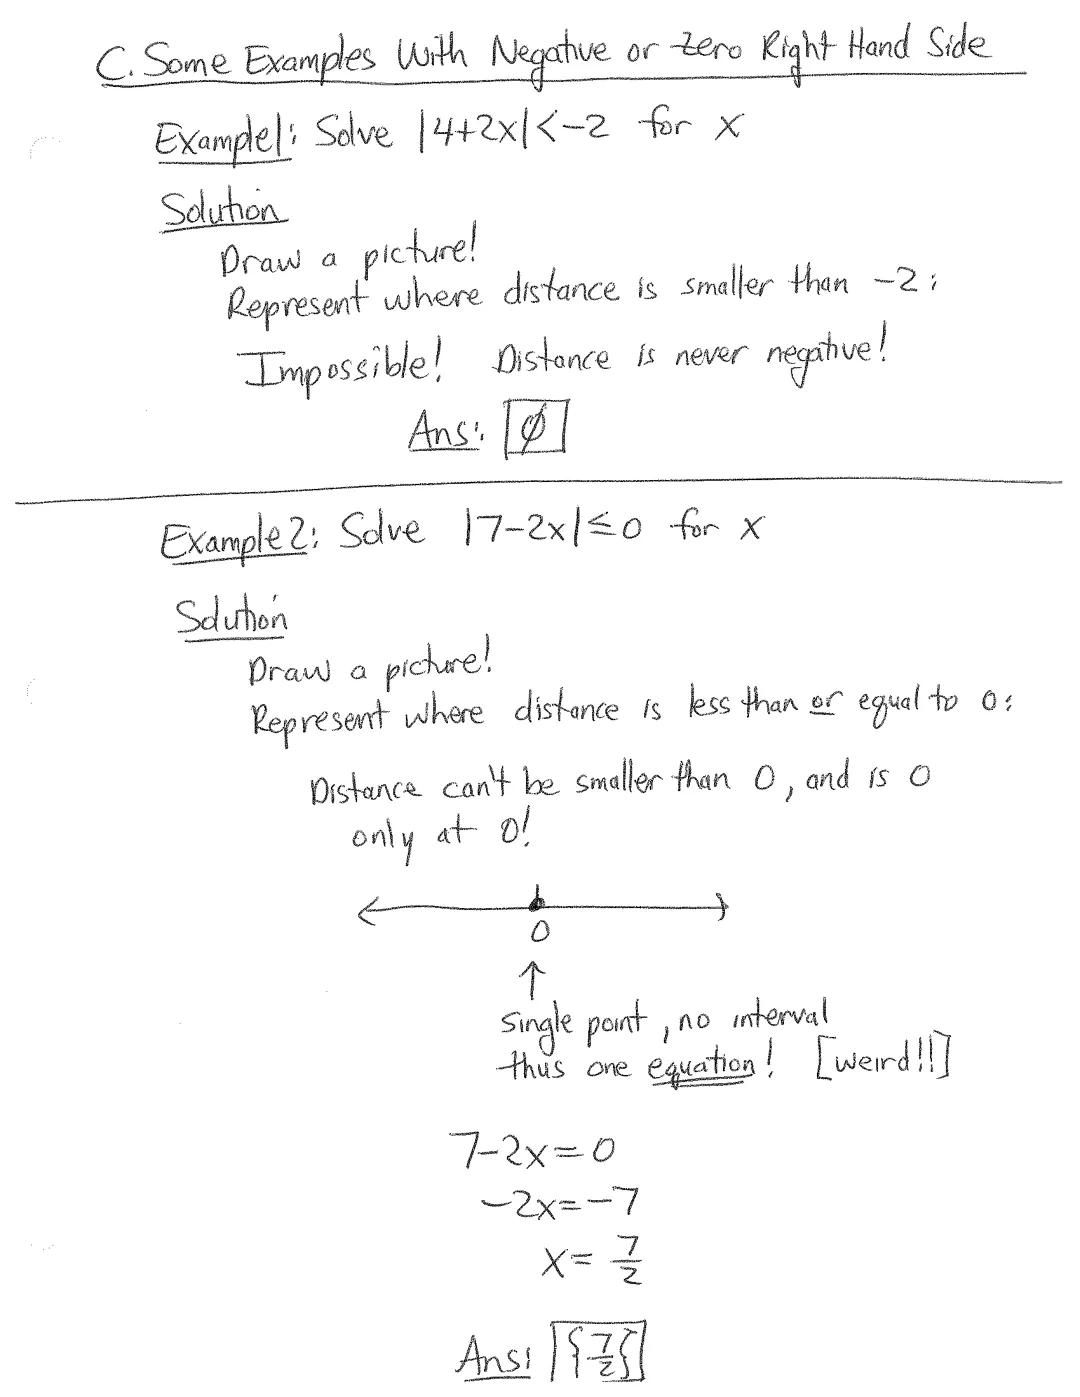 C. Some Examples With Negative or Zero Right Hand Side
Example 1: Solve |4+2x|<-2 for x
Solution
Draw a picture!
Represent where distance is smaller than -2:
Impossible! Distance is never negative!
Ans: ∅
Example 2: Solve |7-2x|≤0 for x
Solution
Draw a picture!
Represent where distance is less than or equal to 0:
Distance can't be smaller than 0, and is 0
only at 0!
0
↑
single point, no interval
thus one equation! [weird!!]
7-2x=0
-2x=-7
x=7/2
Ans: {7/2}